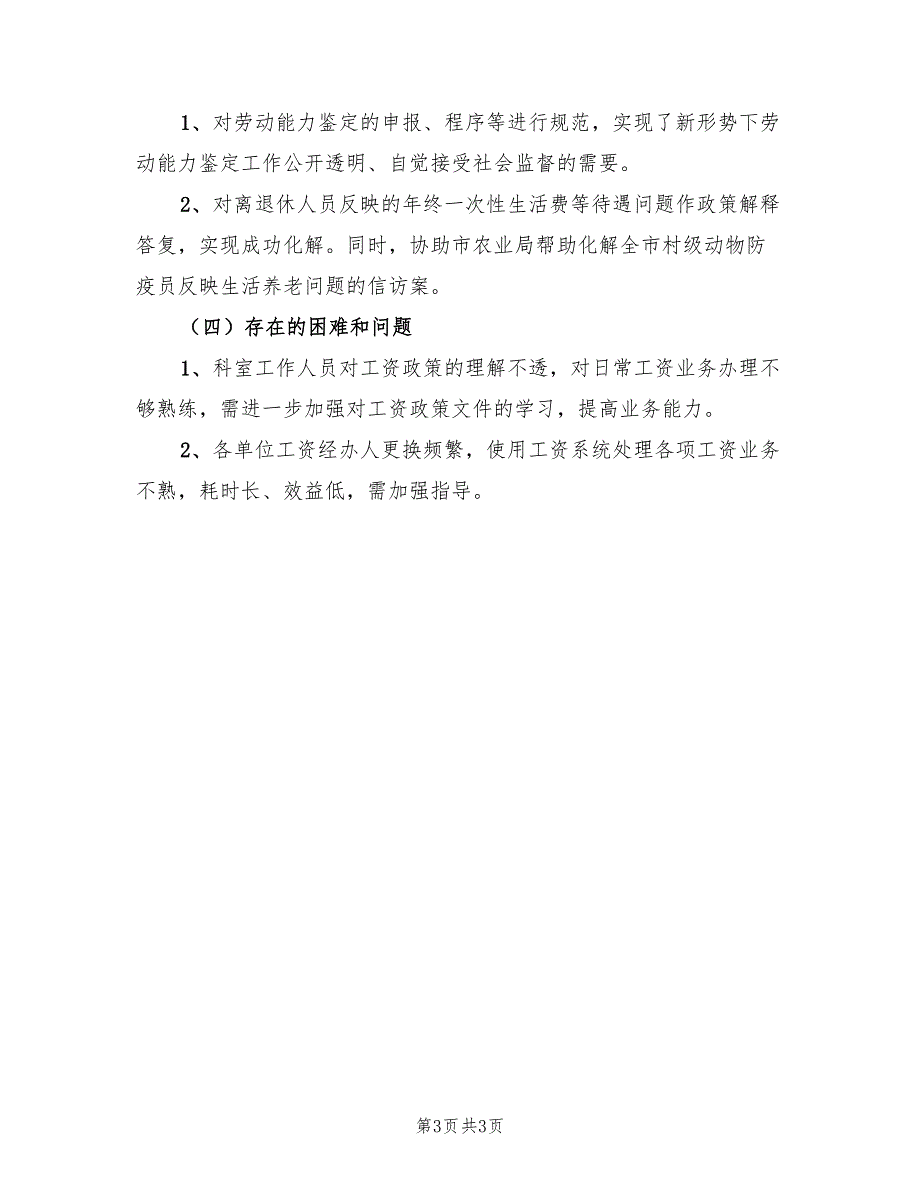 1、对劳动能力鉴定的申报、程序等进行规范，实现了新形势下劳
动能力鉴定工作公开透明、自觉接受社会监督的需要。
2、对离退休人员反映的年终一次性生活费等待遇问题作政策解释
答复，实现成功化解。同时，协助市农业局帮助化解全市村级动物防
疫员反映生活养老问题的信访案。
（四）存在的困难和问题
1、科室工作人员对工资政策的理解不透，对日常工资业务办理不
够熟练，需进一步加强对工资政策文件的学习，提高业务能力。
2、各单位工资经办人更换频繁，使用工资系统处理各项工资业务
不熟，耗时长、效益低，需加强指导。
第3页 共3页